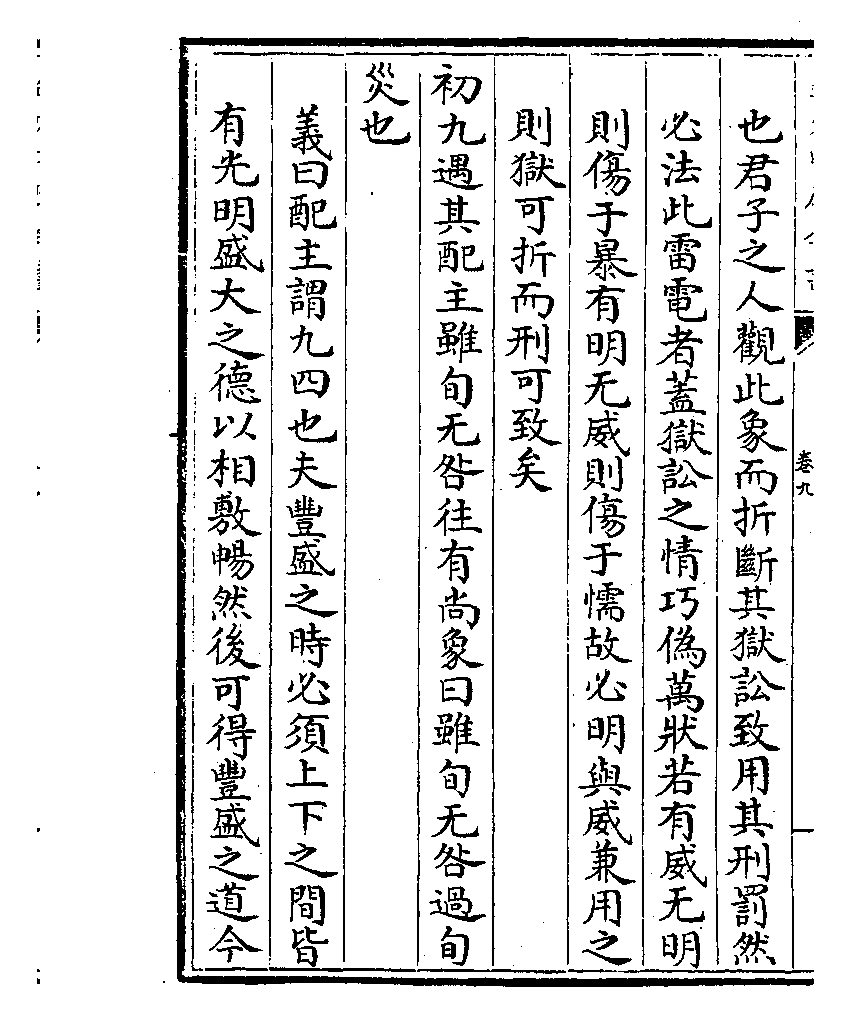 也君子之人觀此象而折斷其獄訟致用其刑罰然
必法此雷電者蓋獄訟之情巧偽萬狀若有威无明
則傷于暴有明无威則傷于懦故必明與威兼用之
則獄可折而刑可致矣
初九遇其配主雖旬无咎往有尚象曰雖旬无咎過旬
災也
義曰配主謂九四也夫豐盛之時必須上下之間皆
有光明盛大之德以相敷暢然後可得豐盛之道今
卷九